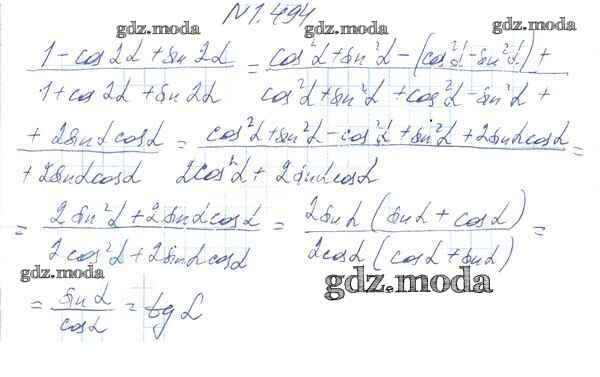 N 1.494
gdz.moda gdz.moda
(1 - cos 2α + sin 2α)/(1 + cos 2α + sin 2α) = (cos²α + sin²α - (cos²α - sin²α) +)/(cos²α + sin²α + cos²α - sin²α +)
gdz.moda gdz.moda
(+ 2sinα cosα)/(+ 2sinα cosα) = (cos²α + sin²α - cos²α + sin²α + 2sinα cosα)/(2cos²α + 2sinα cosα) =
= (2 sin²α + 2 sinα cosα)/(2 cos²α + 2 sinα cosα) = (2 sinα (sinα + cosα))/(2cosα (cosα + sinα)) =
gdz.moda gdz.moda
= sinα/cosα = tg α